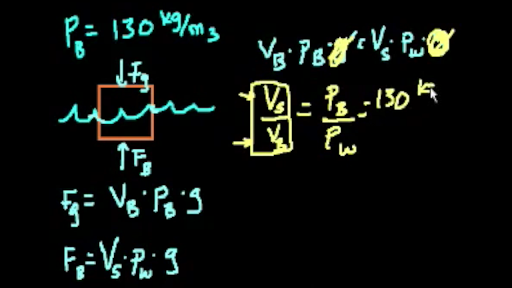 ρ_B = 130 kg/m3
F_g
F_B
F_g = V_B · ρ_B · g
F_B = V_s · ρ_w · g
V_B · ρ_B · g = V_s · ρ_w · g
V_s/V_B = ρ_B/ρ_w = 130 k